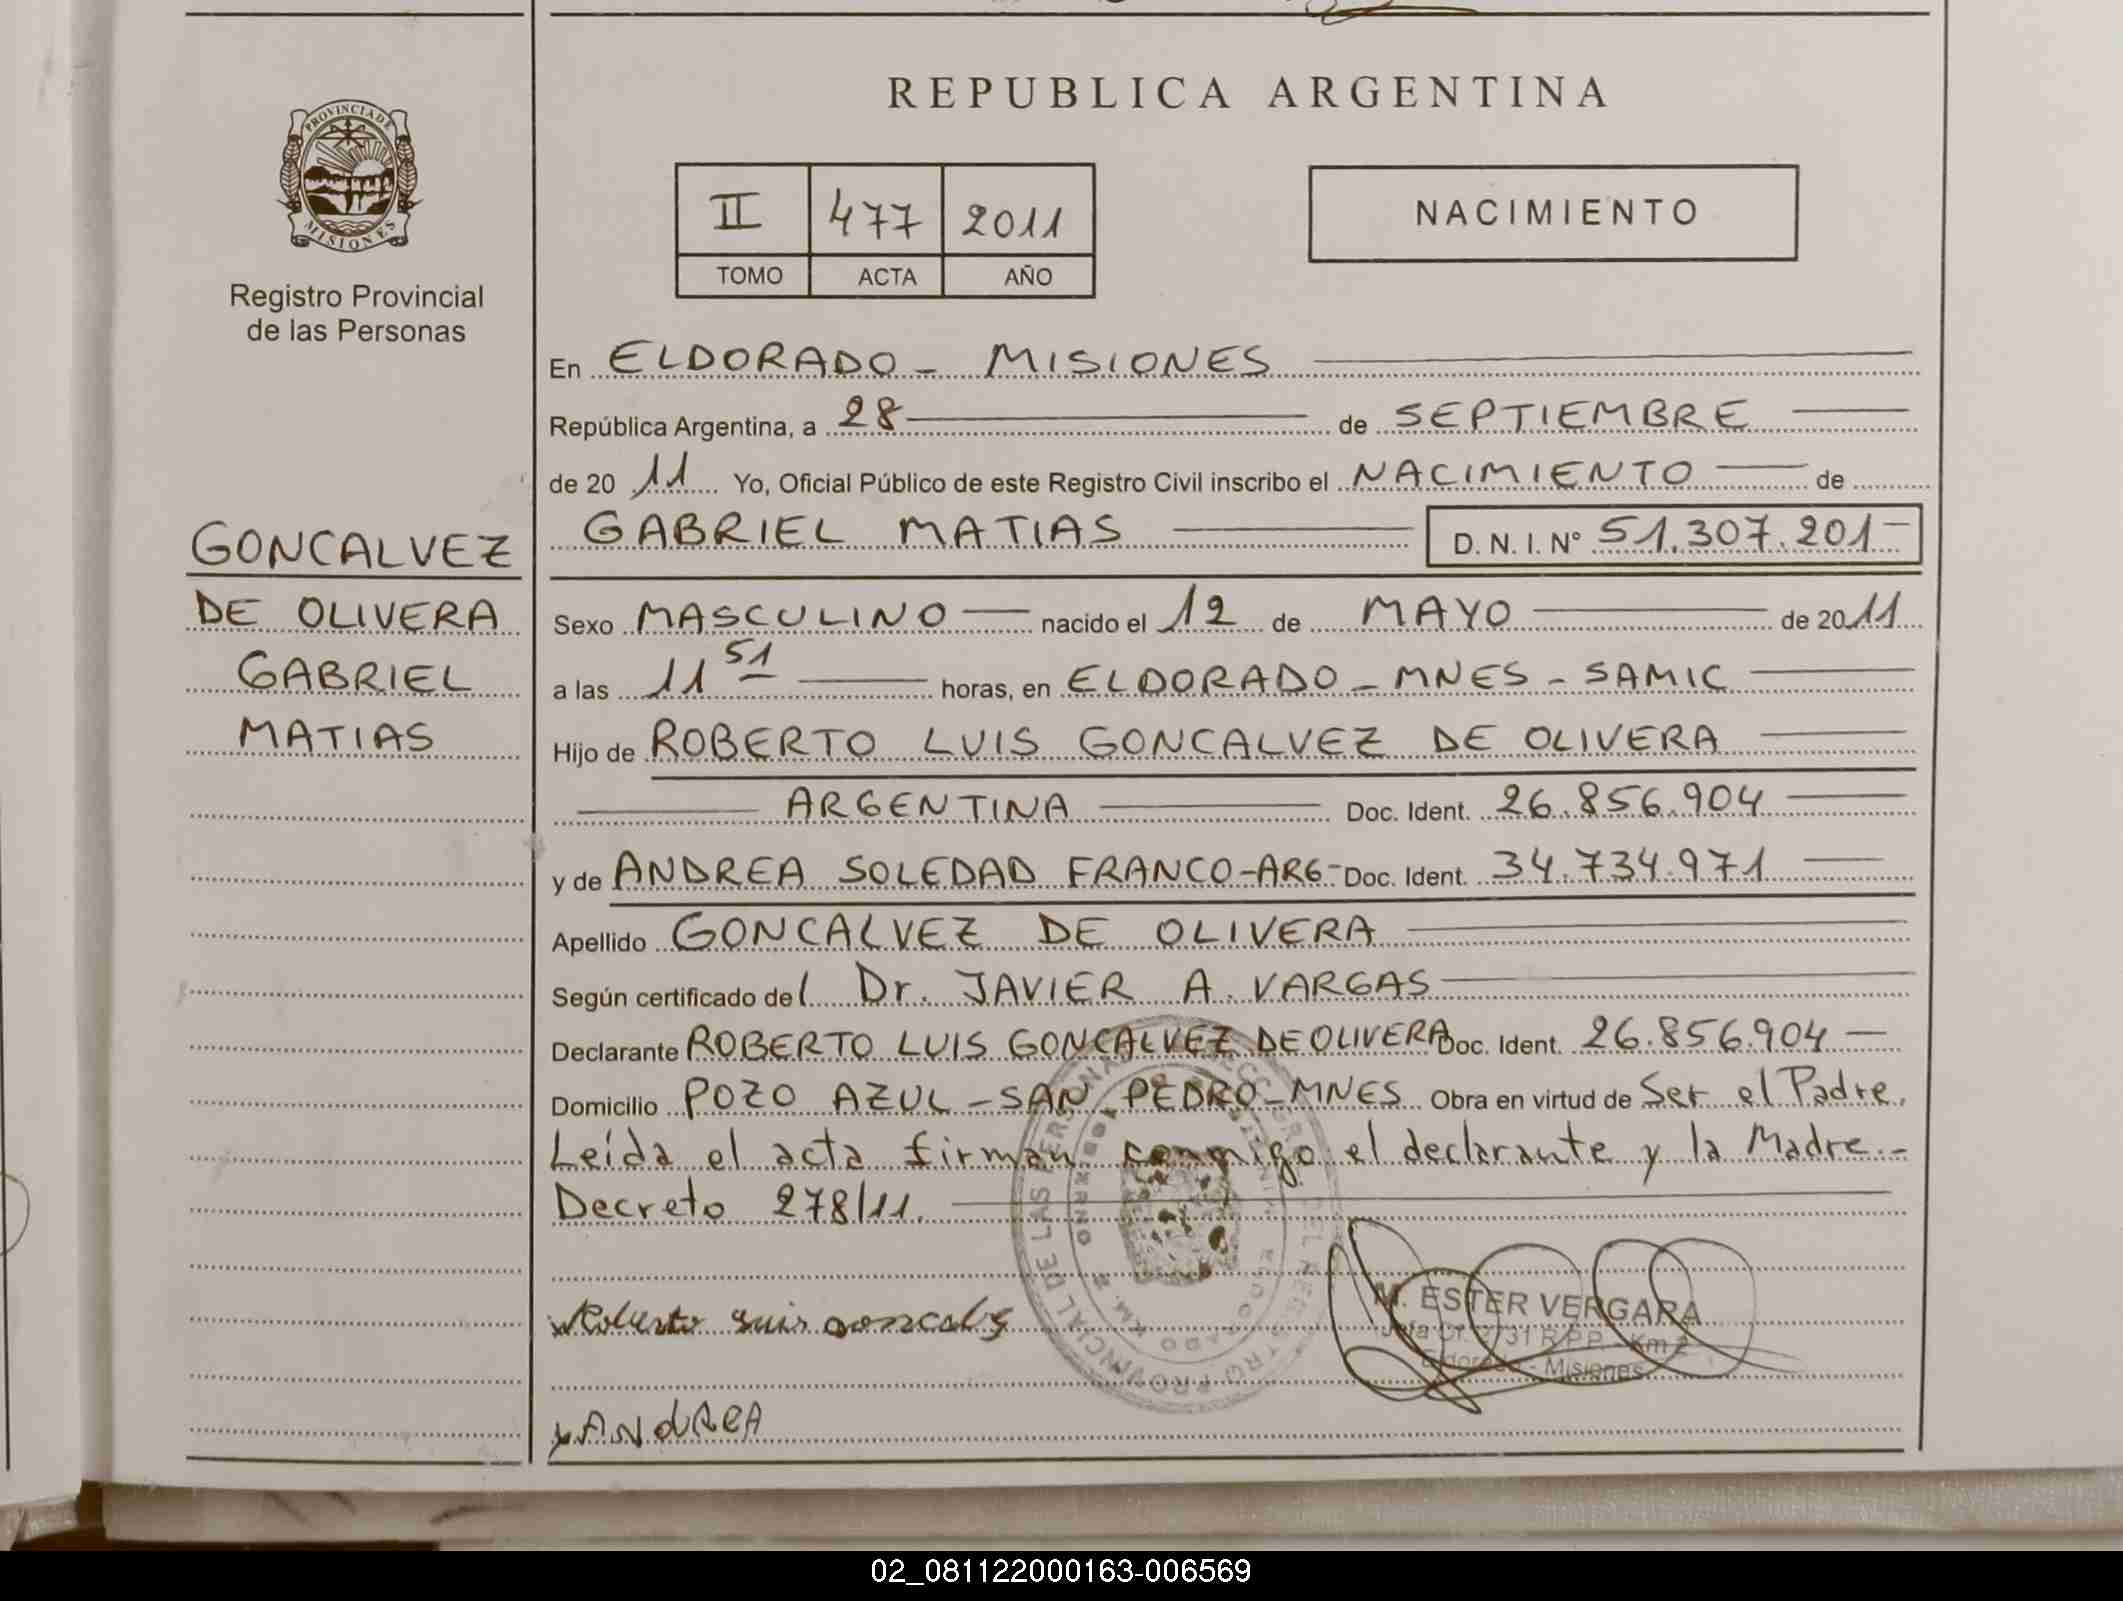 REPUBLICA ARGENTINA
PROVINCIA DE
MISIONES
Registro Provincial
de las Personas
II 477 2011
TOMO ACTA AÑO
NACIMIENTO
En ELDORADO - MISIONES
República Argentina, a 28 de SEPTIEMBRE
de 20 11 Yo, Oficial Público de este Registro Civil inscribo el NACIMIENTO de
GABRIEL MATIAS D. N. I. N° 51.307.201-
GONCALVEZ
DE OLIVERA
GABRIEL
MATIAS
Sexo MASCULINO nacido el 12 de MAYO de 2011
a las 11 51 horas, en ELDORADO - MNES - SAMIC
Hijo de ROBERTO LUIS GONCALVEZ DE OLIVERA
ARGENTINA Doc. Ident. 26.856.904
y de ANDREA SOLEDAD FRANCO-ARG- Doc. Ident. 34.734.971
Apellido GONCALVEZ DE OLIVERA
Según certificado del Dr. JAVIER A. VARGAS
Declarante ROBERTO LUIS GONCALVEZ DE OLIVERA Doc. Ident. 26.856.904
Domicilio POZO AZUL - SAN PEDRO - MNES Obra en virtud de Ser el Padre.
Leída el acta firman conmigo el declarante y la Madre.-
Decreto 278/11.
Roberto Luis
M. ESTER VERGARA
Jefa Of. 2731 R.P.P. - Km 2
Eldorado - Misiones
ANdReA
PROVINCIAL DE LAS PERSONAS
02_081122000163-006569